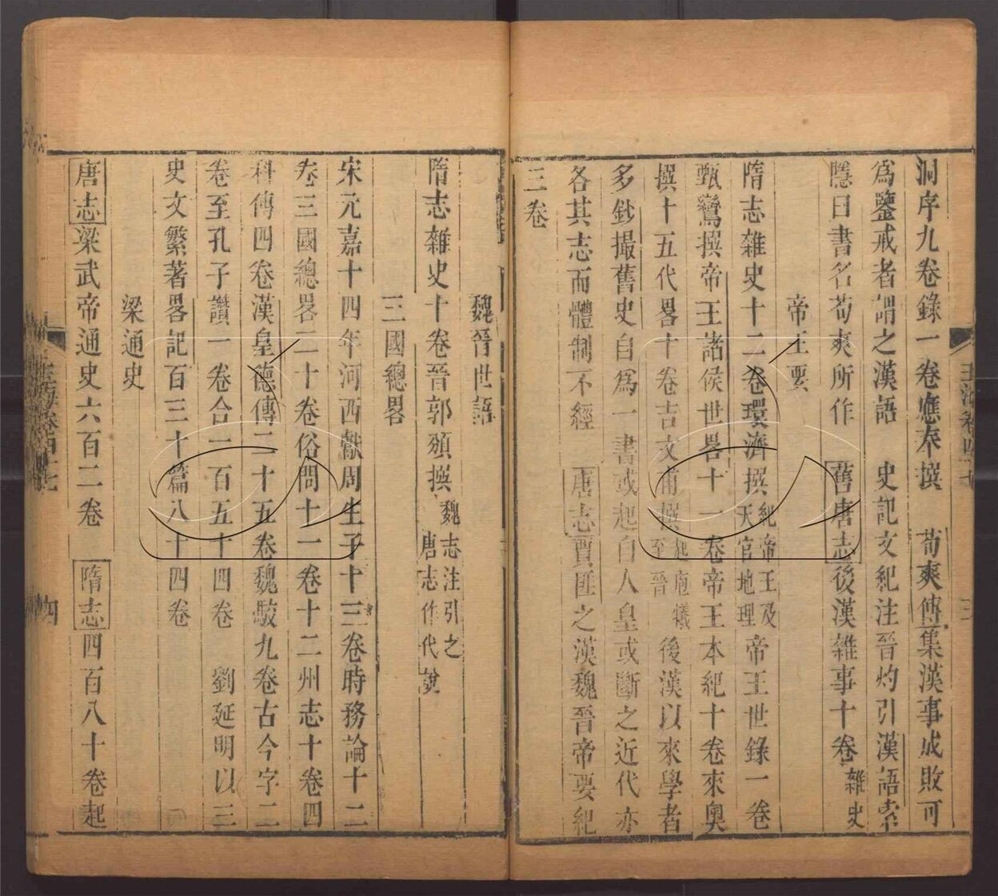 洞序九卷錄一卷應奉撰　荀爽傳集漢事成敗可
為鑒戒者謂之漢語　史記文紀注晉灼引漢語索
隱曰書名荀爽所作　舊唐志後漢雜事十卷雜史
帝王要
隋志雜史十二卷環濟撰紀帝王及天官地理帝王世錄一卷
甄鸞撰帝王諸侯世畧十一卷帝王本紀十卷來奧
撰十五代畧十卷吉文甫撰起庖犧至晉後漢以來學者
多鈔撮舊史自為一書或起自人皇或斷之近代亦
各其志而體制不經　唐志賈匪之漢魏晉帝要紀
三卷
玉海卷四十七
三
魏晉世語
隋志雜史十卷晉郭頒撰魏志注引之唐志作代說
三國總畧
宋元嘉十四年河西獻周生子十三卷時務論十二
卷三國總畧二十卷俗問十一卷十二州志十卷四
科傳四卷漢皇德傳二十五卷魏駮九卷古今字二
卷至孔子讚一卷合一百五十四卷　劉延明以三
史文繁著畧記百三十篇八十四卷
梁通史
唐志梁武帝通史六百二卷　隋志四百八十卷起
玉海卷四十七
四